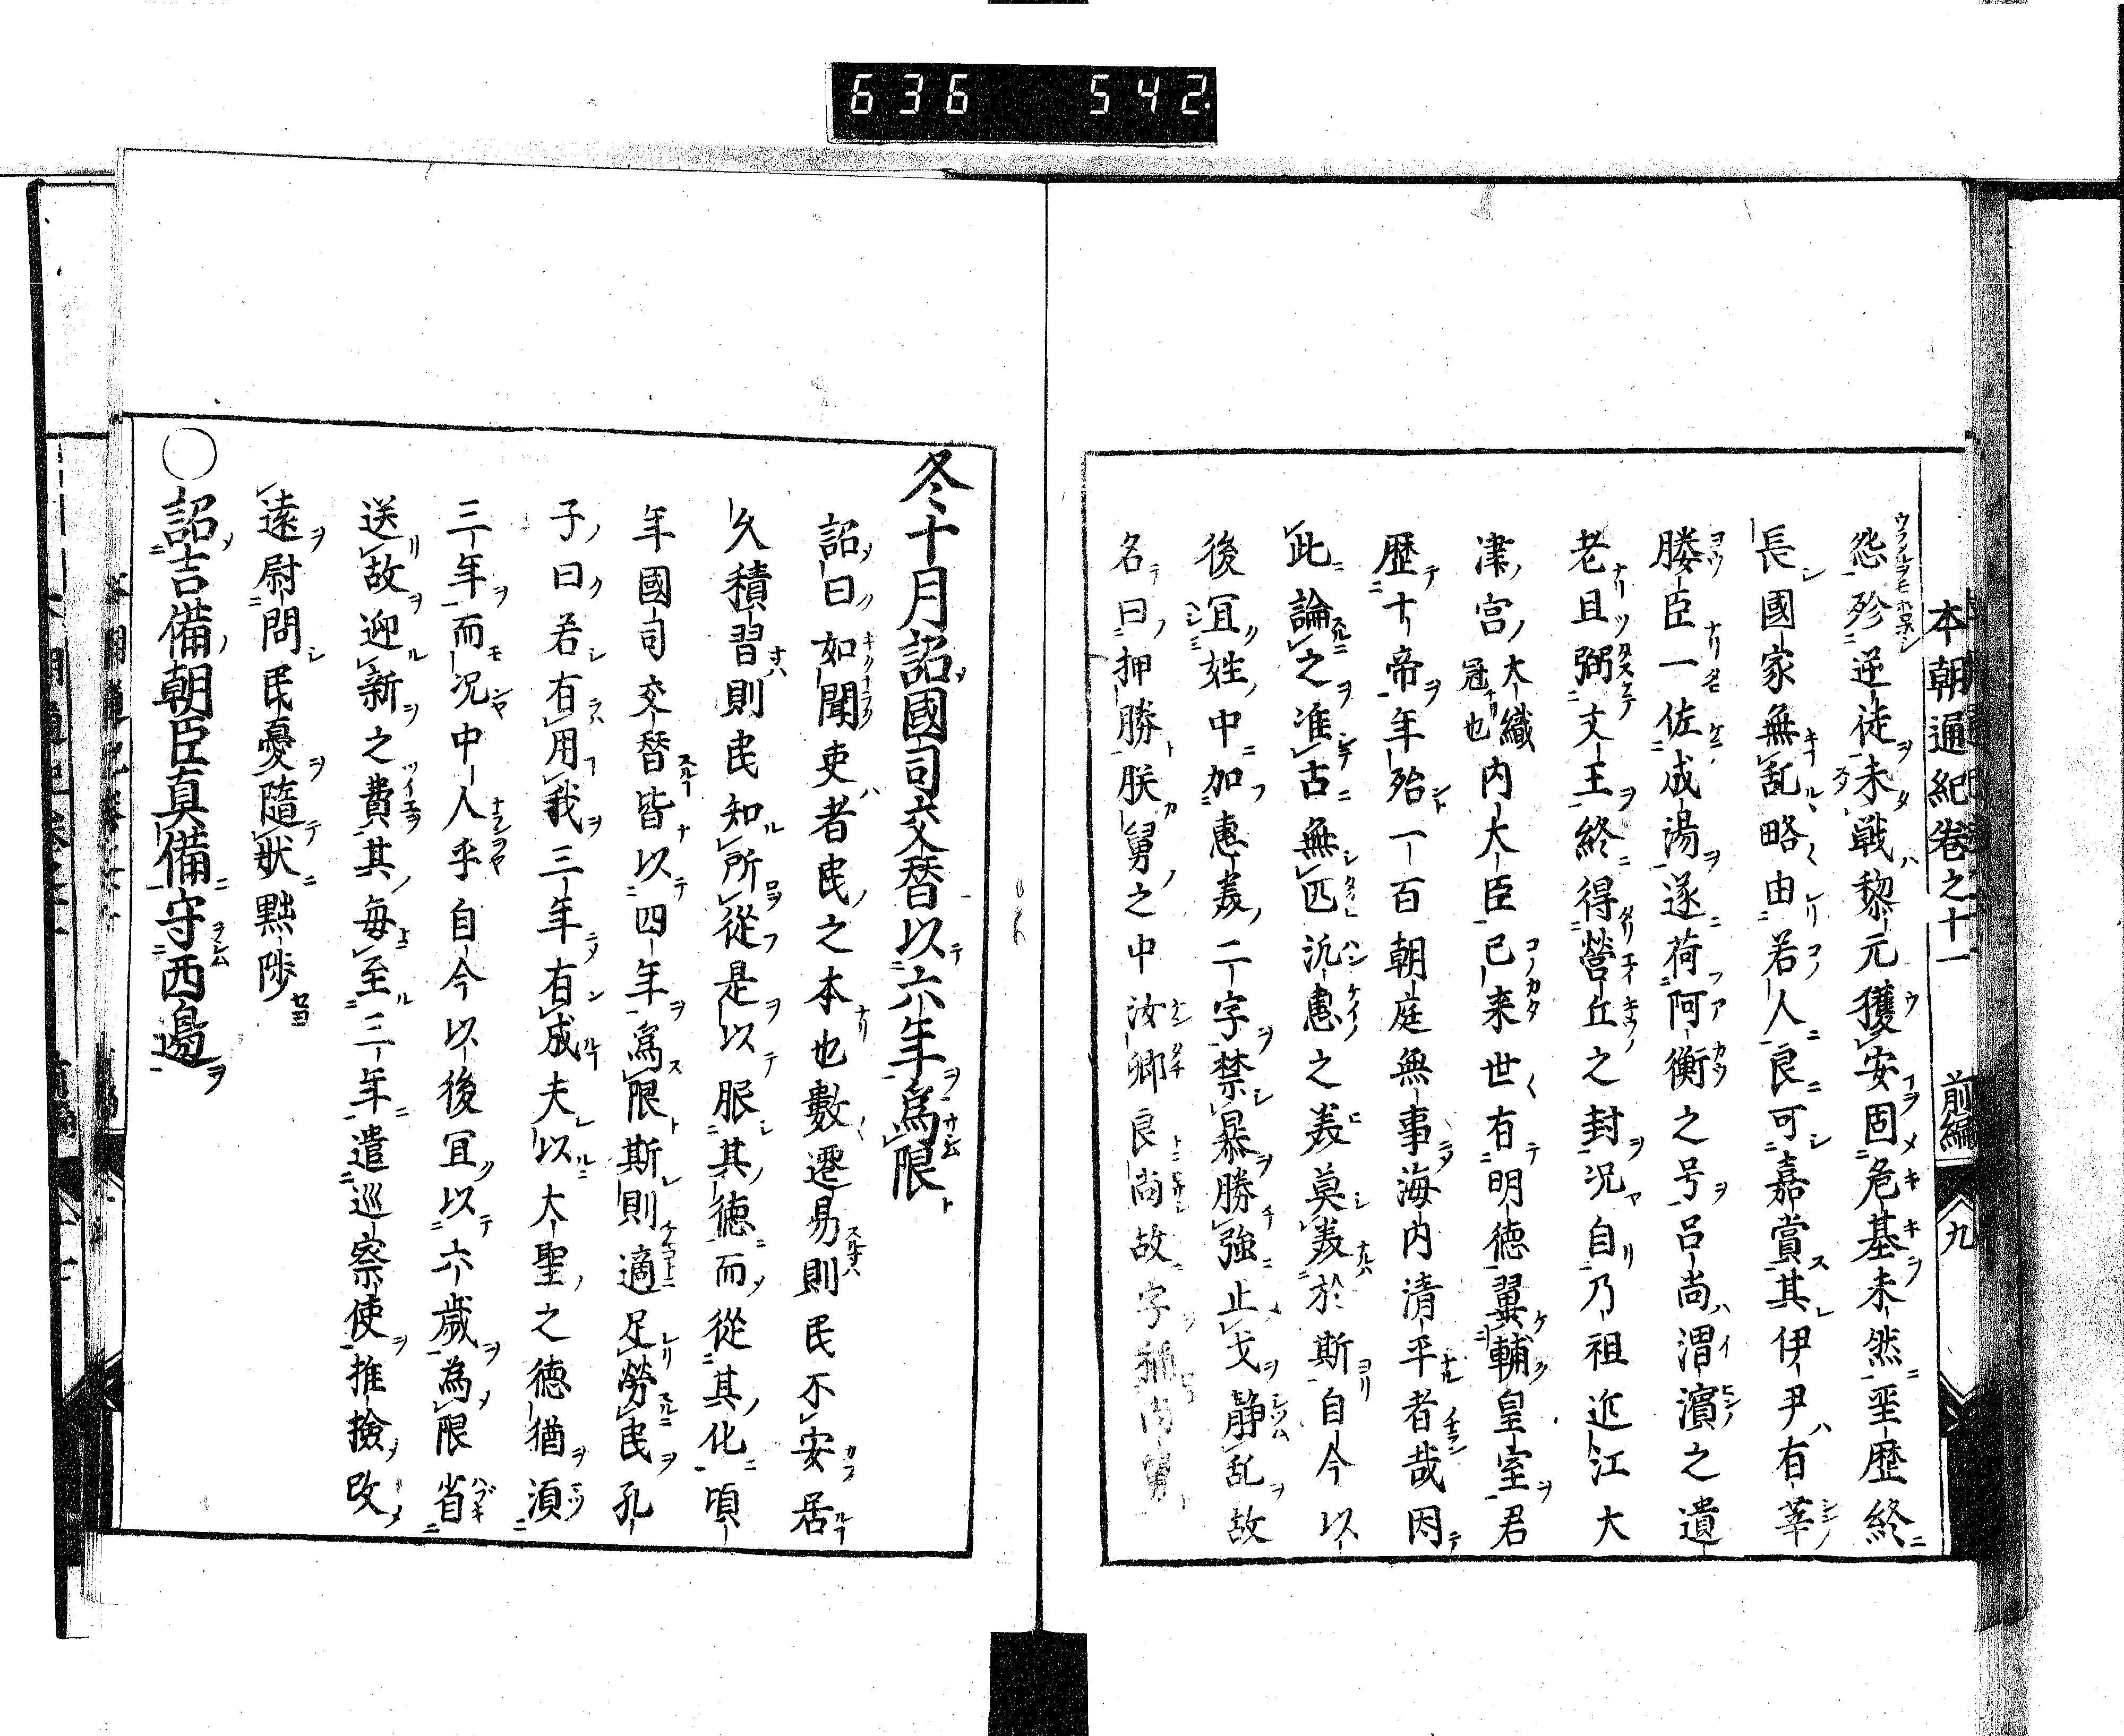 636 542
本朝通紀卷之十一 前編 九
怨殄逆徒未戦黎元獲安固危基未然至歴終
長國家無乱略由若人良可嘉賞其伊尹有莘
媵臣一佐成湯遂荷阿衡之号呂尚渭濱之遺
老且弼文王終得營丘之封况自乃祖近江大
津宮大織冠也内大臣已来世有明徳翼輔皇室君
歴十帝年殆一百朝庭無事海内清平者哉因
此論之准古無匹汎惠之美莫美於斯自今以
後冝姓中加惠美二字禁暴勝強止戈静乱故
名曰押勝朕舅之中汝卿良尚故字稱尚舅
冬十月詔國司交替以六年為限
詔曰如聞吏者民之本也數遷易則民不安居
久積習則民知所從是以服其徳而從其化頃
年國司交替皆以四年為限斯則適足勞民孔
子曰若有用我三年有成夫以大聖之徳猶湏
三年而况中人乎自今以後冝以六歳為限省
送故迎新之費其毎至三年遣巡察使推撿政
遠尉問民憂隨状黜陟
〇詔吉備朝臣真備守西邉